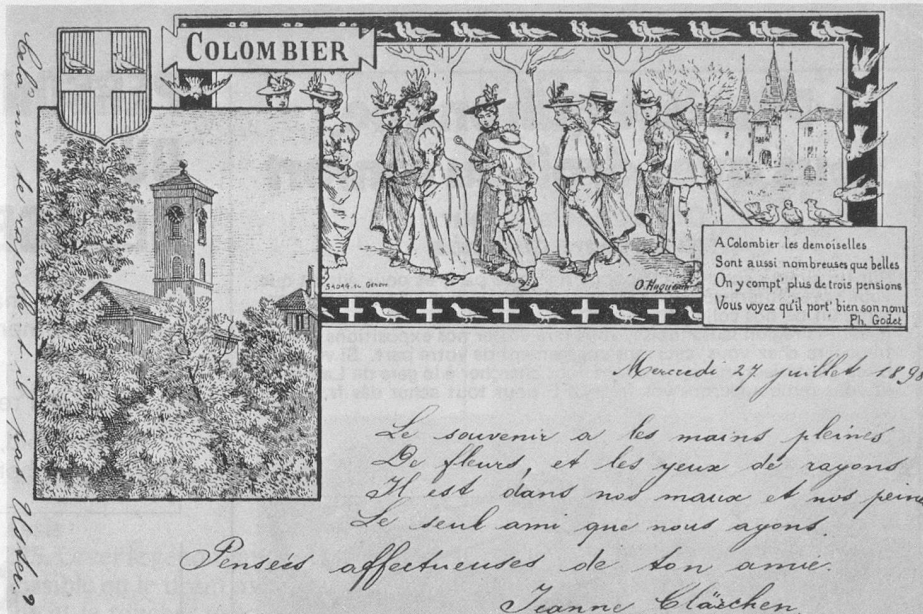 COLOMBIER
SADAG. sc. GENÈVE
O. Huguenin
A Colombier les demoiselles
Sont aussi nombreuses que belles
On y compt' plus de trois pensions
Vous voyez qu'il port' bien son nom
Ph. Godet
Mercredi 27 juillet 189
Le souvenir a les mains pleines
De fleurs, et les yeux de rayons
Il est dans nos maux et nos peine
Le seul ami que nous ayons.
Pensées affectueuses de ton amie.
Jeanne Clärchen.
Cela ne te rappelle t-il pas Uster?